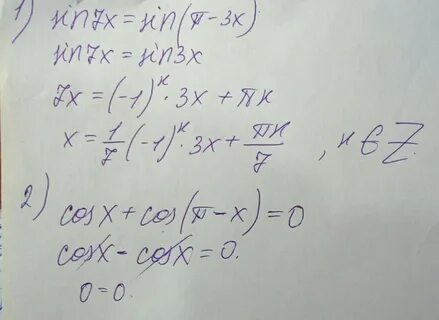 1) sin7x = sin(π-3x)
sin7x = sin3x
7x = (-1)ᵏ · 3x + πк
x = 1/7 (-1)ᵏ · 3x + πк/7 , к ∈ Z.
2) cosx + cos(π-x) = 0
cosx - cosx = 0.
0 = 0.